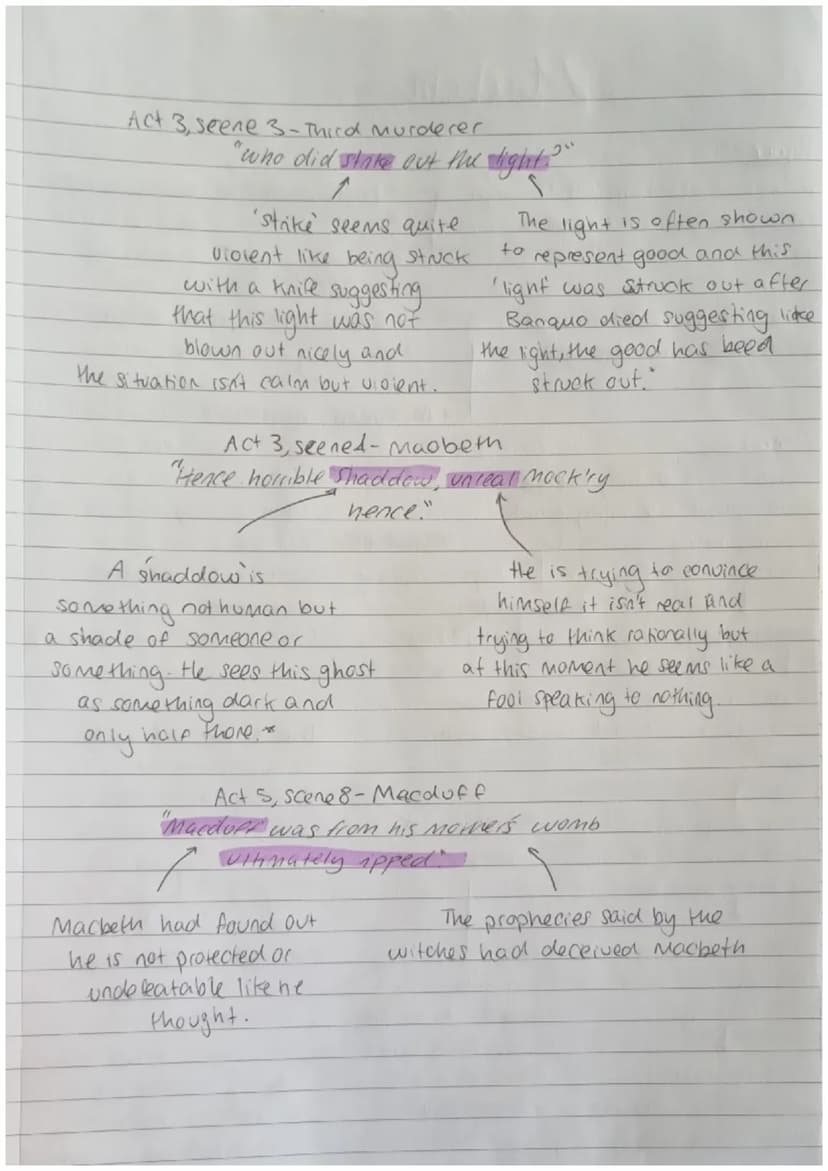 Act 3, seene 3 - Third Murderer
"Who did strike out the light?"
'Strike' seems quite
violent like being struck
with a knife suggesting
that this light was not
blown out nicely and
the situation isn't calm but violent.
The light is often shown
to represent good and this
'light' was struck out after
Banquo died suggesting like
the light, the good has beed
struck out."
Act 3, seene4 - Macbeth
"Hence horrible shaddow, unreal mock'ry
hence."
A 'shaddow' is
something not human but
a shade of someone or
something. He sees this ghost
as something dark and
only half there.*
He is trying to convince
himself it isn't real and
trying to think rationally but
at this moment he seems like a
fool speaking to nothing.
Act 5, scene 8 - Macduff
"Macduff was from his mothers womb
ultimately ripped"
Macbeth had found out
he is not protected or
undefeatable like he
thought.
The prophecies said by the
witches had deceived Macbeth